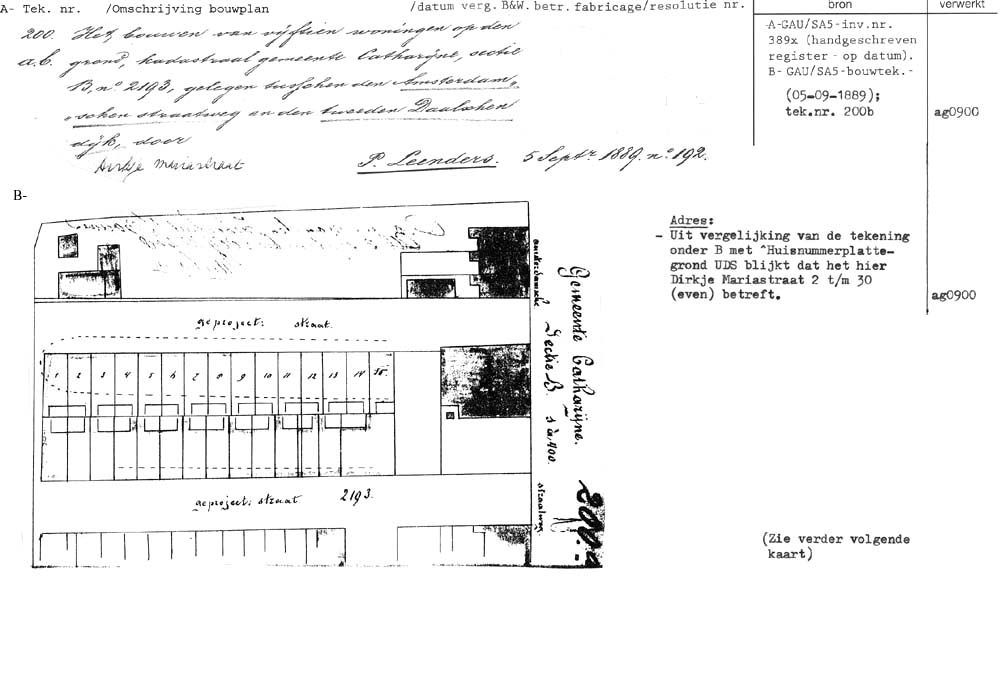 A- Tek. nr. /Omschrijving bouwplan /datum verg. B&W. betr. fabricage/resolutie nr. bron verwerkt
200. Het bouwen van vijftien woningen op den
a.b. grond, kadastraal gemeente Catharijne, sectie
B, no 2193, gelegen tusschen den Amsterdam„
„schen straatweg en den tweeden Daalschen
dijk, door
Dirkje Mariastraat P. Leenders. 5 Septr 1889. no. 192.
A-GAU/SA5-inv.nr.
389x (handgeschreven
register - op datum).
B- GAU/SA5-bouwtek.-
(05-09-1889);
tek.nr. 200b ag0900
B-
Adres:
- Uit vergelijking van de tekening
onder B met ^Huisnummerplatte-
grond UDS blijkt dat het hier
Dirkje Mariastraat 2 t/m 30
(even) betreft. ag0900
geproject: straat.
1 2 3 4 5 6 7 8 9 10 11 12 13 14 15.
geproject: straat 2193.
Amsterdamsche
straatweg
Gemeente Catharijne.
Sectie B. 1 à 400.
200.
(Zie verder volgende
kaart)